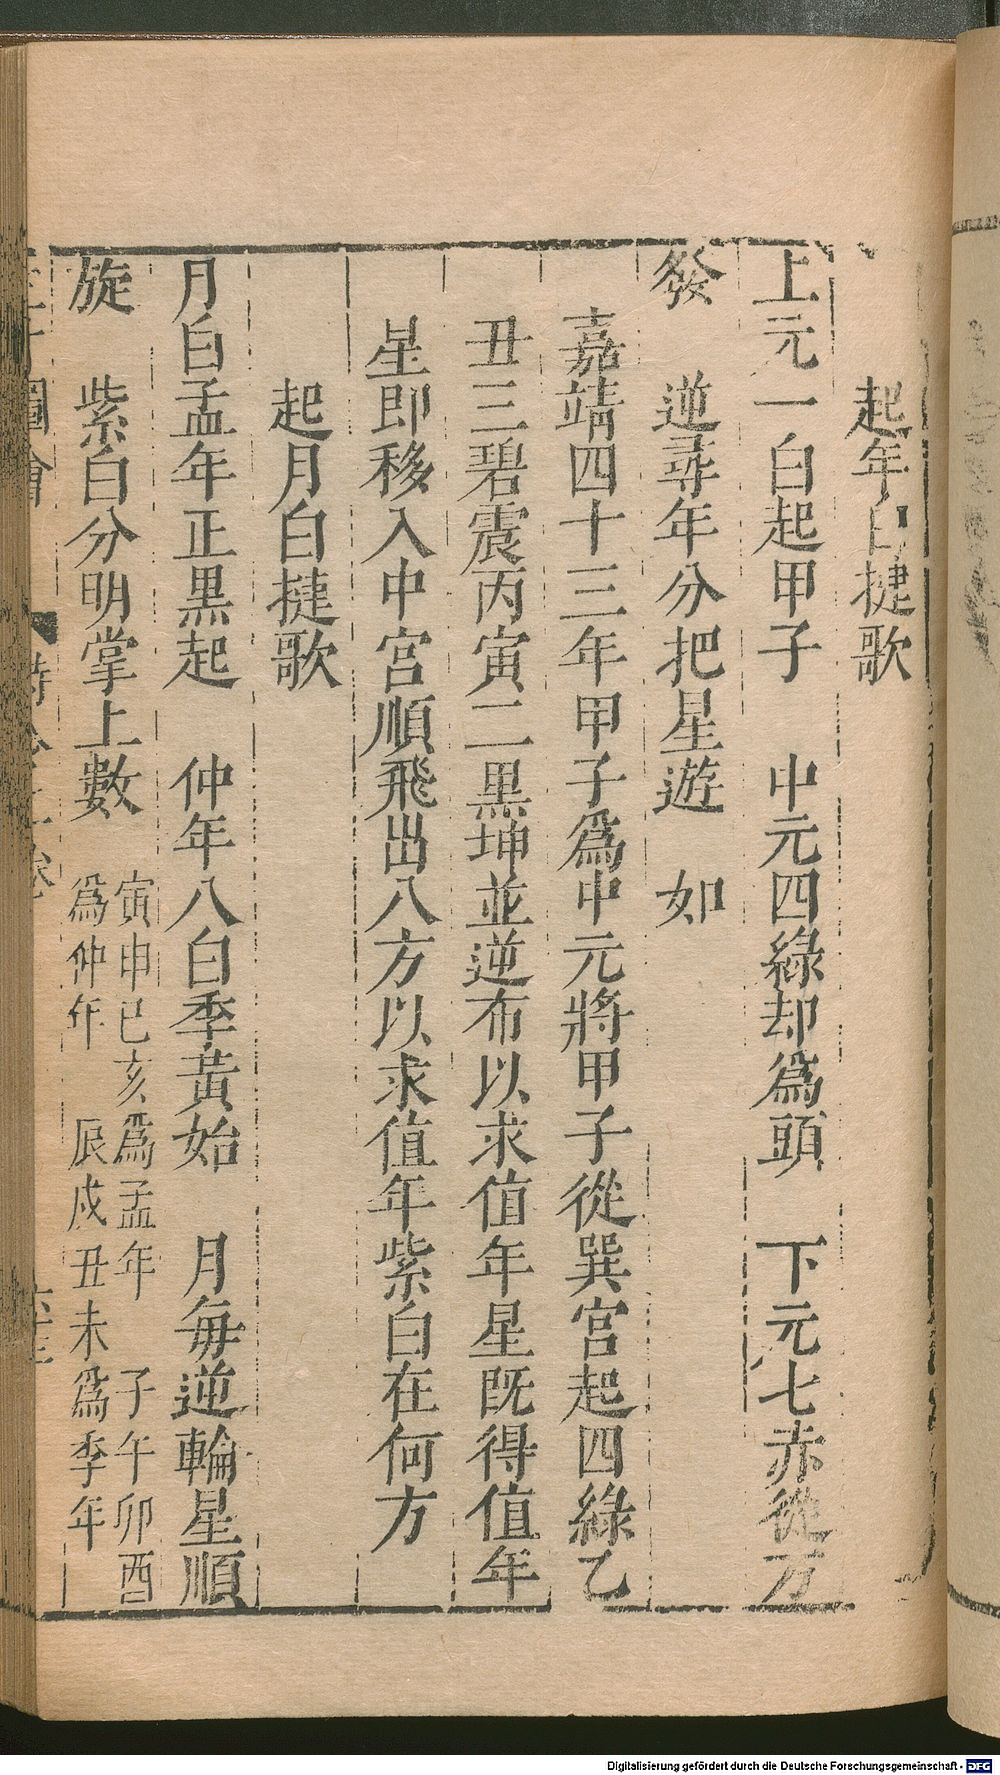 起年白捷歌
上元一白起甲子　中元四綠却爲頭　下元七赤從方
發　逆尋年分把星遊　如
嘉靖四十三年甲子爲中元將甲子從巽宮起四綠乙
丑三碧震丙寅二黒坤並逆布以求值年星既得值年
星即移入中宮順飛出八方以求值年紫白在何方
起月白捷歌
月白孟年正黒起　仲年八白季黃始　月每逆輪星順
旋　紫白分明掌上數　寅申巳亥爲孟年　子午卯酉
爲仲年　辰戌丑未爲季年
圖會
Digitalisierung gefördert durch die Deutsche Forschungsgemeinschaft - DFG